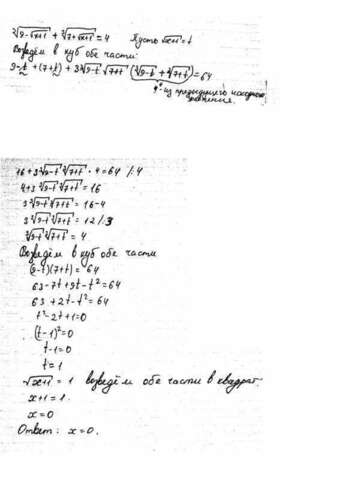 ∛(9-√(x+1)) + ∛(7+√(x+1)) = 4   Пусть √(x+1) = t
Возведём в куб обе части:
9-t + (7+t) + 3∛(9-t) ∛(7+t) (∛(9-t) + ∛(7+t)) = 64
4 из предыдущего исходного
значения.
16+3∛(9-t) ∛(7+t) · 4 = 64 /:4
4+3∛(9-t) ∛(7+t) = 16
3∛(9-t) ∛(7+t) = 16-4
3∛(9-t) ∛(7+t) = 12 /:3
∛(9-t) ∛(7+t) = 4
Возведём в куб обе части
(9-t)(7+t) = 64
63-7t+9t-t²=64
63+2t-t²=64
t²-2t+1=0
(t-1)²=0
t-1=0
t=1
√(x+1) = 1 возведём обе части в квадрат:
x+1=1
x=0
Ответ: x=0.